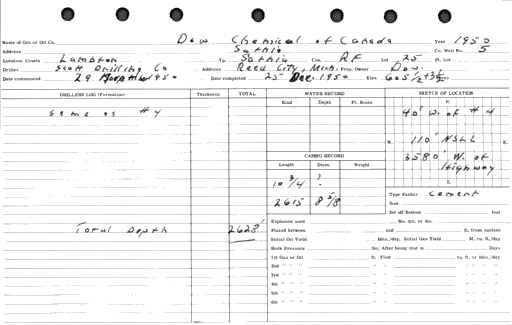 Name of Gas or Oil Co. Dow Chemical of Canada Year 1950
Address Sarnia Co. Well No. 5
Location, County Lambton Tp. Sarnia Con. RF Lot 25 Pt. Lot
Driller Scott Drilling Co Address Reed City, Mich. Prop. Owner Dow
Date commenced 29 1950 Date completed 25 Dec. 1950 Elev. 605
DRILLERS LOG (Formation) Thickness TOTAL WATER RECORD SKETCH OF LOCATION
Kind Depth Pt. Boxes N.
same as #4 40' W. of #4
W. 110' NSLL E.
CASING RECORD 3580' W. of Highway
Length Diam. Weight S.
10 3/4 ?
2615 8 5/8 Type Packer cement
Size
Set off Bottom feet
Explosive used No. qts. or lbs.
Total Depth 2628' Placed between and ft. from surface
Initial Oil Yield Bbls./day, Initial Gas Yield M. cu. ft./day
Rock Pressure lbs. After being shut in Days
1st Gas or Oil ft. Flow cu. ft. or bbls./day
2nd " " " " " " " " "
3rd " " " " " " " " "
4th " " " " " " " " "
5th " " " " " " " " "
6th " " " " " " " " "